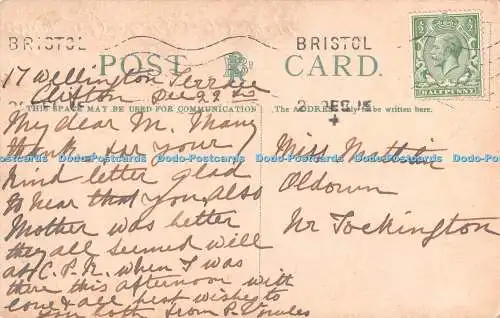 BRISTOL
BRISTOL
POST CARD.
HALFPENNY
17 Wellington Terrace
Clifton Dec 22nd
DEC 15
THIS SPACE MAY BE USED FOR COMMUNICATION
The ADDRESS only to be written here.
My dear M. Many
thanks for your
kind letter glad
to hear that you, also
Mother was better
they all seemed well
at C. P. R. when I was
there this afternoon with
love & all best wishes to
you both from P.
Miss
Oldown
Nr Tockington
Dodo-Postcards Dodo-Postcards Dodo-Postcards Dodo-Postcards Dodo-Postcards Dodo-Postcards